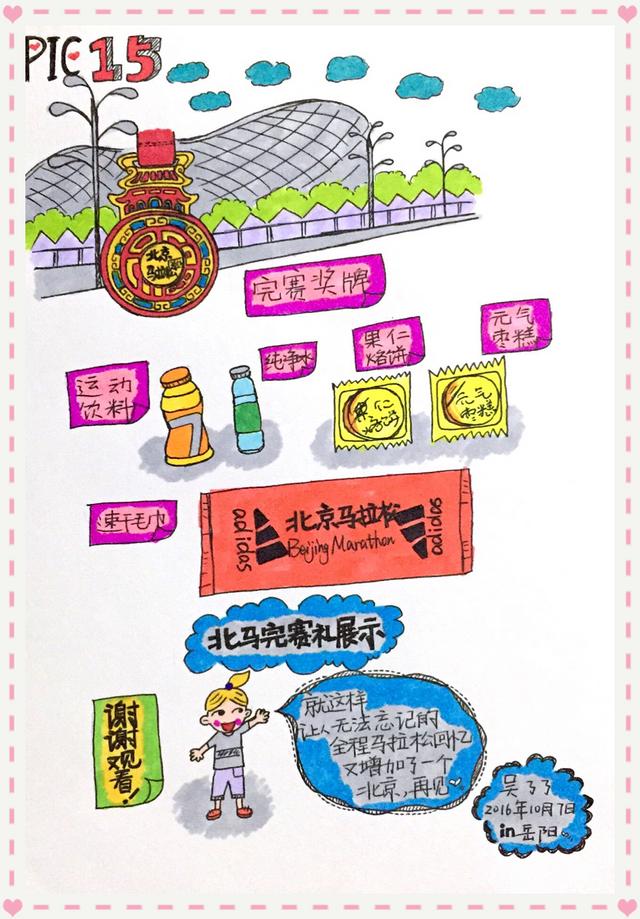 PIC 15
北京
马拉松
完赛奖牌
元气
枣糕
果仁
烙饼
纯净水
运动
饮料
果仁
烙饼
元气
枣糕
速干毛巾
adidas
北京马拉松
Beijing Marathon
adidas
北马完赛礼展示
谢谢观看!
就这样
让人无法忘记的
全程马拉松回忆
又增加了一个
北京,再见
吴了了
2016年10月7日
in 岳阳